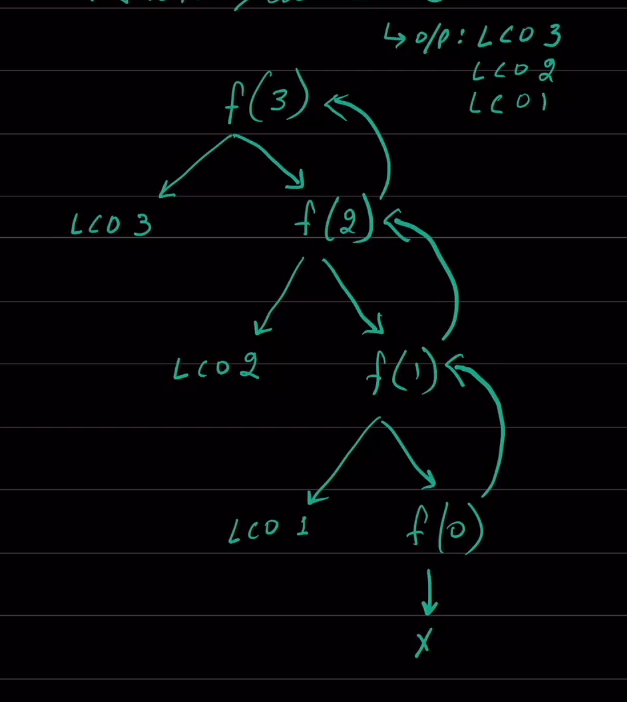 ↳ o/p : LCO 3
LCO 2
LCO 1
f(3)
LCO 3
f(2)
LCO 2
f(1)
LCO 1
f(0)
X